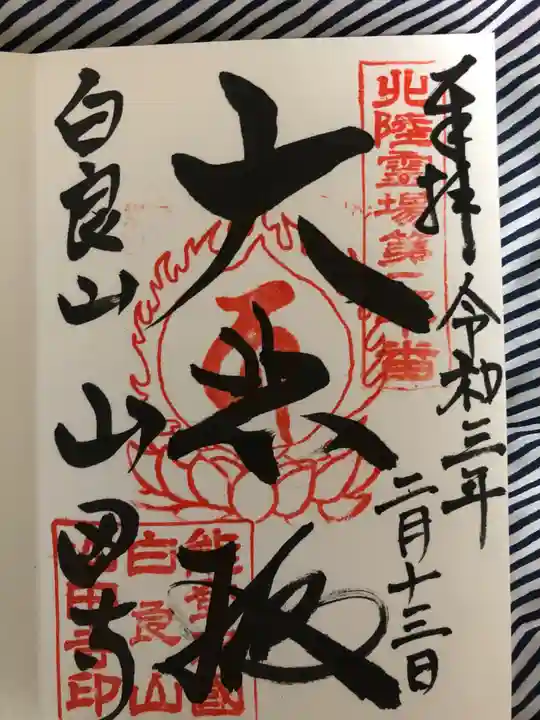 奉拝
令和三年
二月十三日
北陸霊場第二十番
大悲殿
白良山
山田寺
能登國
白良山
山田寺印